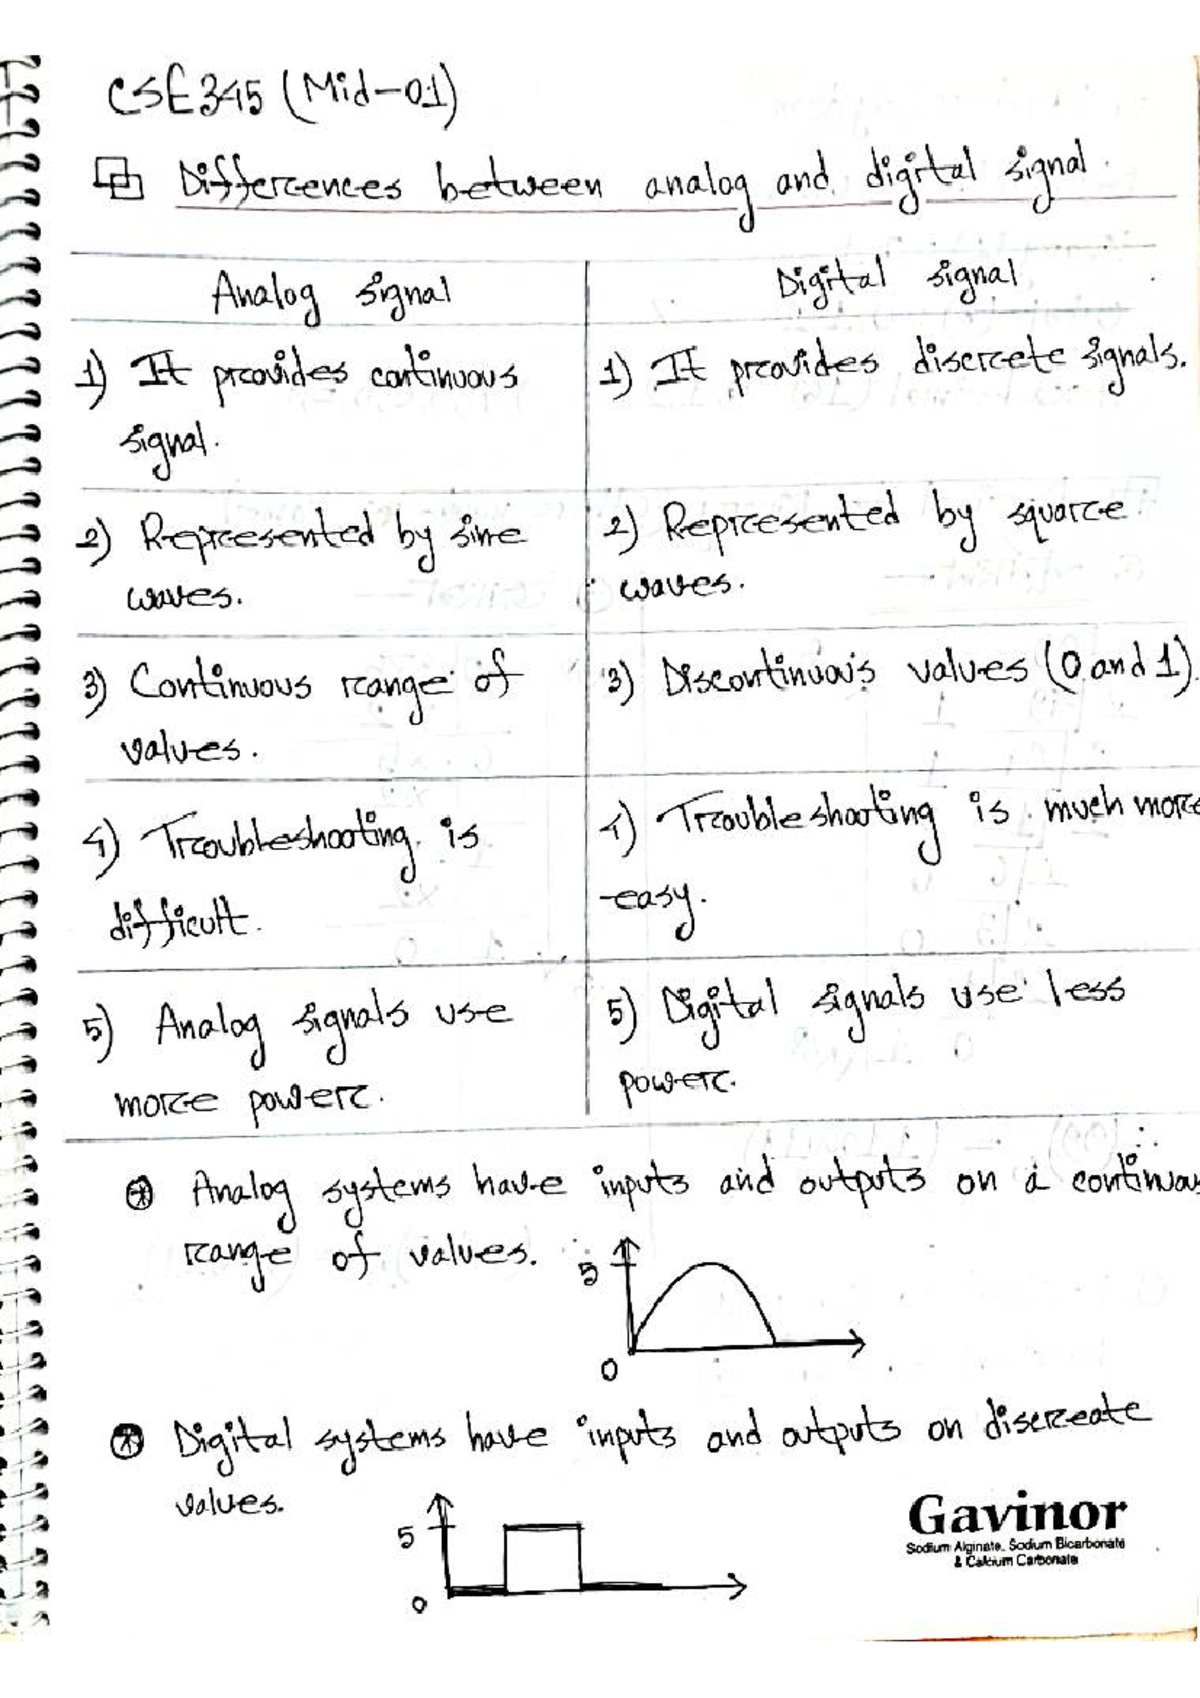 CSE345 (Mid-01)
Differences between analog and digital signal.
Analog signal
Digital signal
1) It provides continuous
signal.
1) It provides discrete signals.
2) Represented by sine
waves.
2) Represented by square
waves.
3) Continuous range of
values.
3) Discontinuous values (0 and 1).
4) Troubleshooting is
difficult.
4) Troubleshooting is much more
easy.
5) Analog signals use
more power.
5) Digital signals use less
power.
Analog systems have inputs and outputs on a continuous
range of values.
5
0
Digital systems have inputs and outputs on discreate
values.
5
0
Gavinor
Sodium Alginate, Sodium Bicarbonate
& Calcium Carbonate